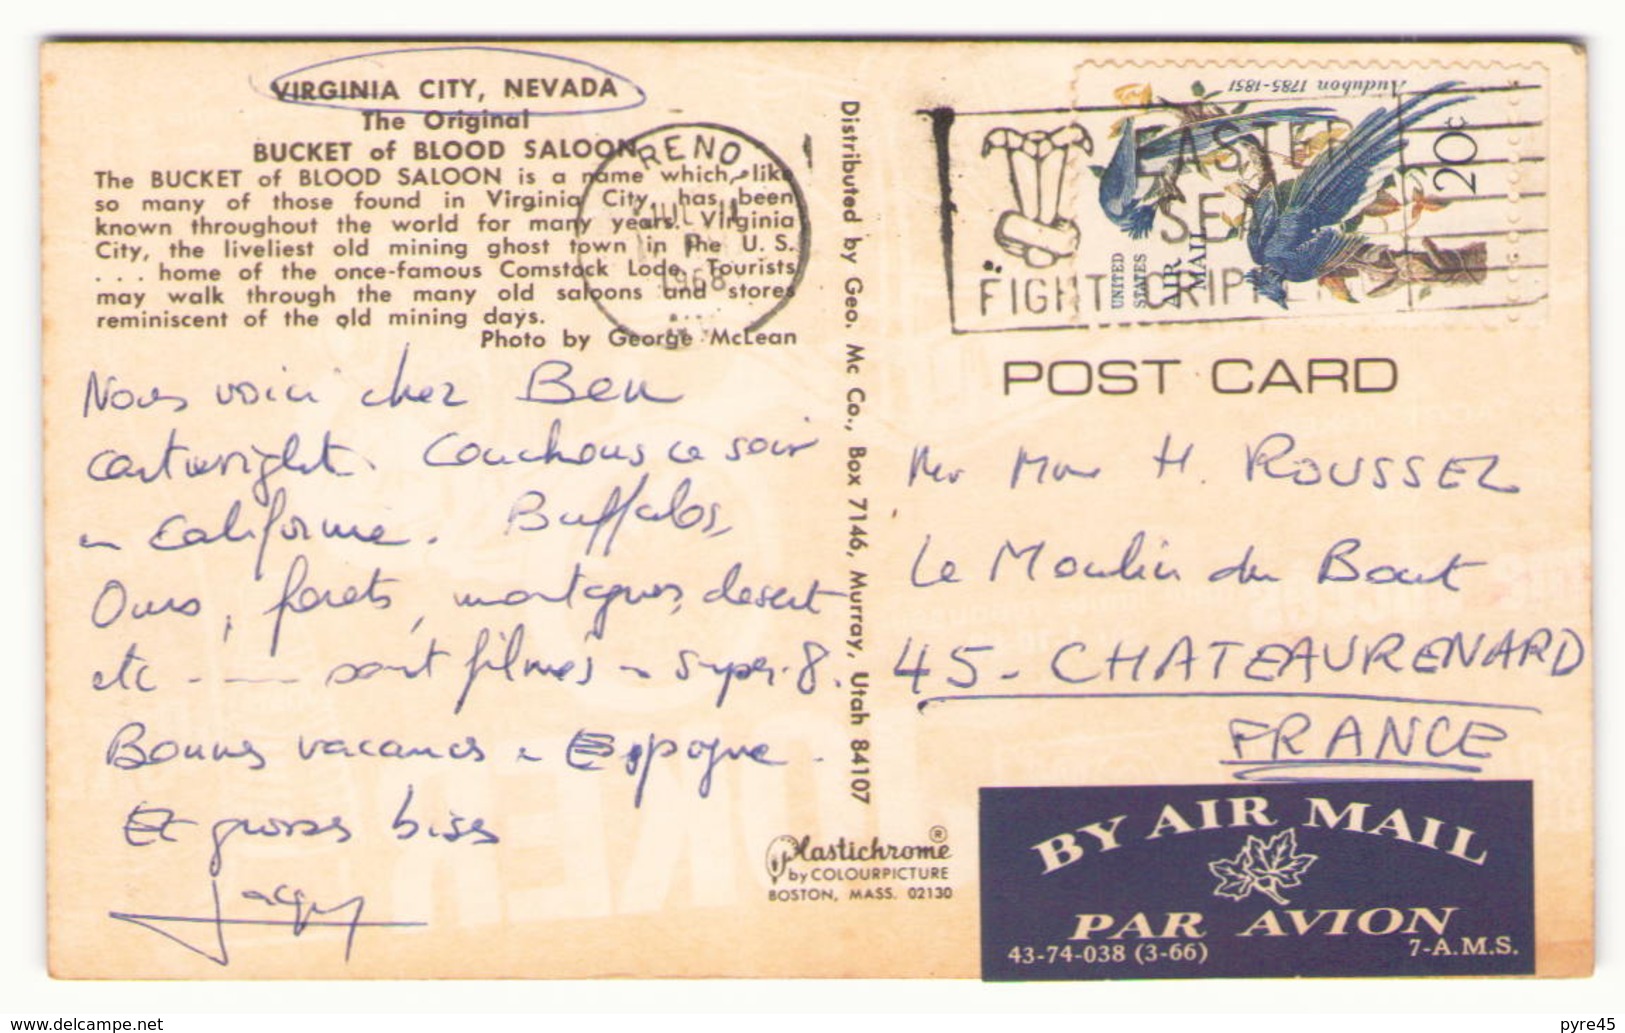 VIRGINIA CITY, NEVADA
The Original
BUCKET of BLOOD SALOON
The BUCKET of BLOOD SALOON is a name which, like
so many of those found in Virginia City, has been
known throughout the world for many years. Virginia
City, the liveliest old mining ghost town in the U. S.
. . . home of the once-famous Comstock Lode. Tourists
may walk through the many old saloons and stores
reminiscent of the old mining days.
Photo by George McLean
Nous voici chez Ben
cartwright. Couchons ce soir
en Californie. Buffalos,
Ours, forets, montagnes, desert
etc - - - sont filmés en super-8.
Bonnes vacances en Espagne.
Et grosses bises
Jacquy
Distributed by Geo. Mc Co., Box 7146, Murray, Utah 84107
Plastichrome ®
by COLOURPICTURE
BOSTON, MASS. 02130
RENO
JUL 11
1968
EASTER
SEA
FIGHT CRIPPLE
Audubon 1785-1851
20c
UNITED
STATES
AIR
MAIL
POST CARD
Mr Mme H. ROUSSEL
Le Moulin du Bout
45 - CHATEAURENARD
FRANCE
BY AIR MAIL
PAR AVION
43-74-038 (3-66)
7-A.M.S.
www.delcampe.net
pyre45